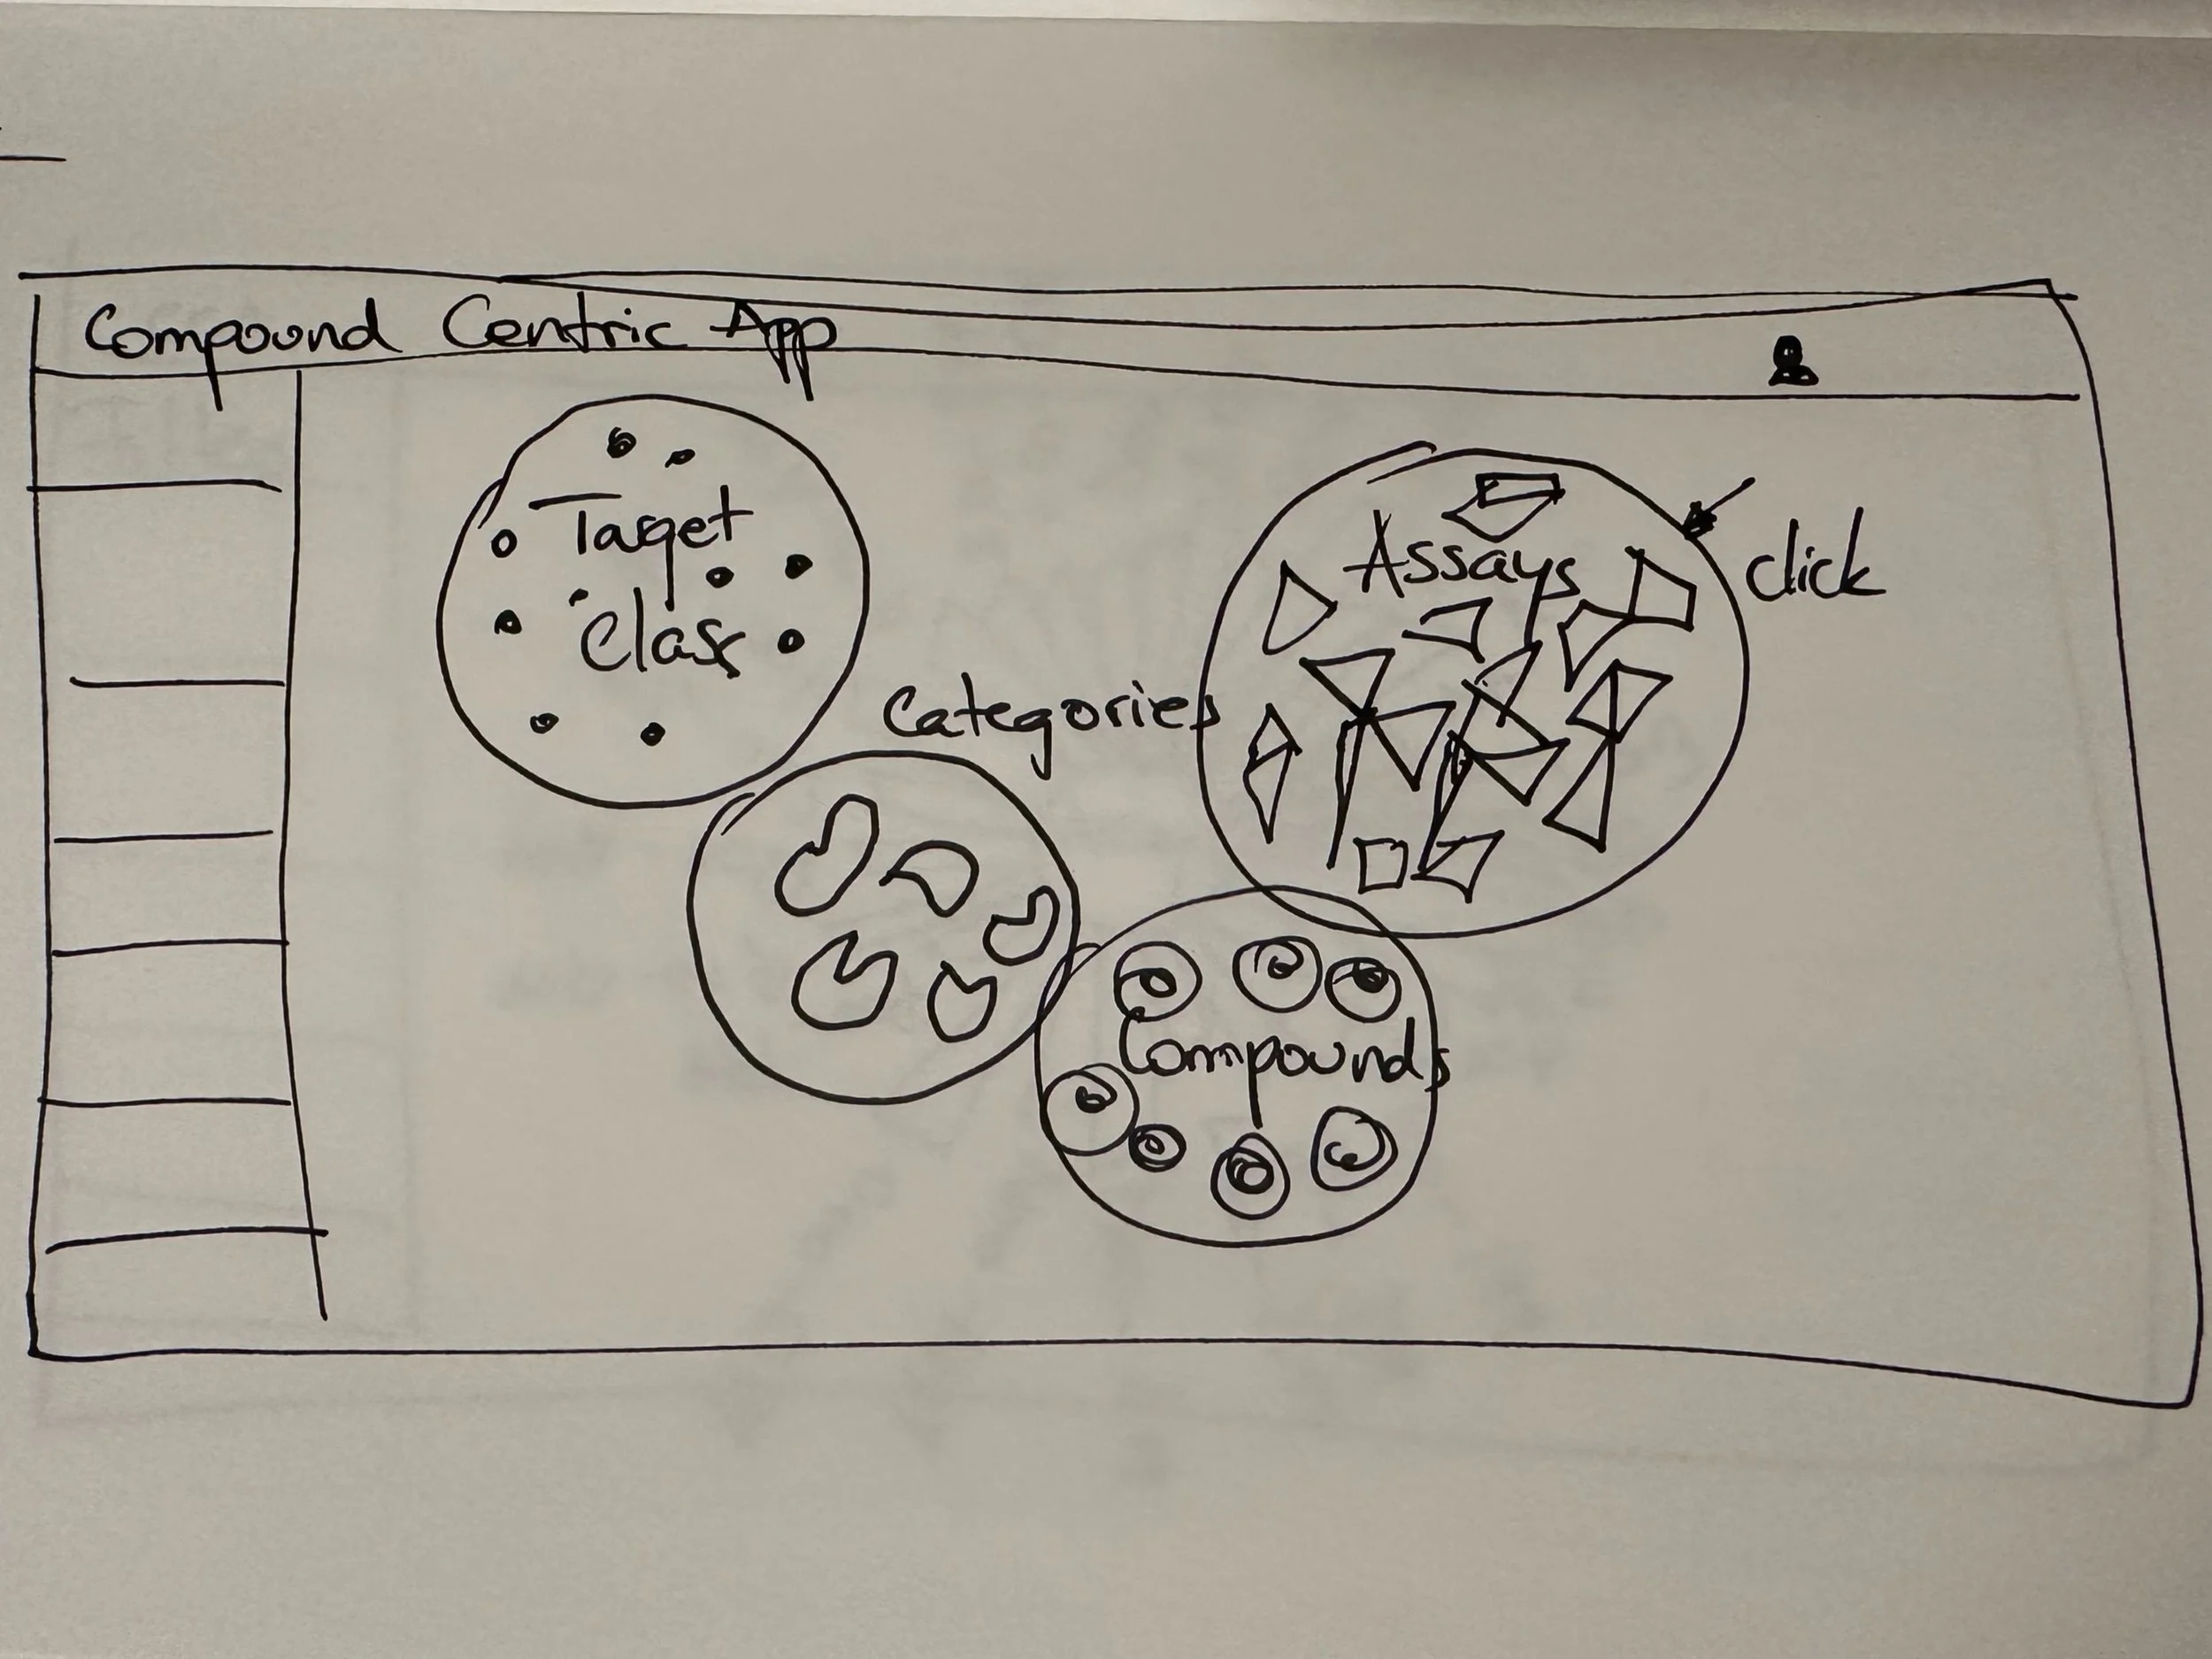 Compound Centric App
Taget
Class
Assays
click
Categories
Compounds